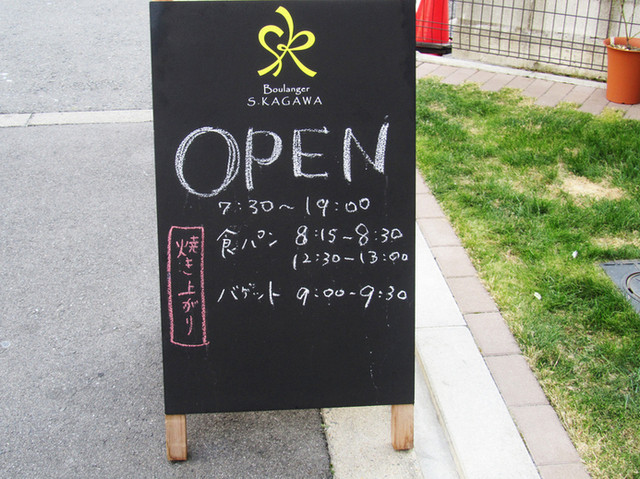 Boulanger
S.KAGAWA
OPEN
7:30～19:00
焼き上がり
食パン 8:15～8:30
12:30－13:00
バゲット 9:00－9:30